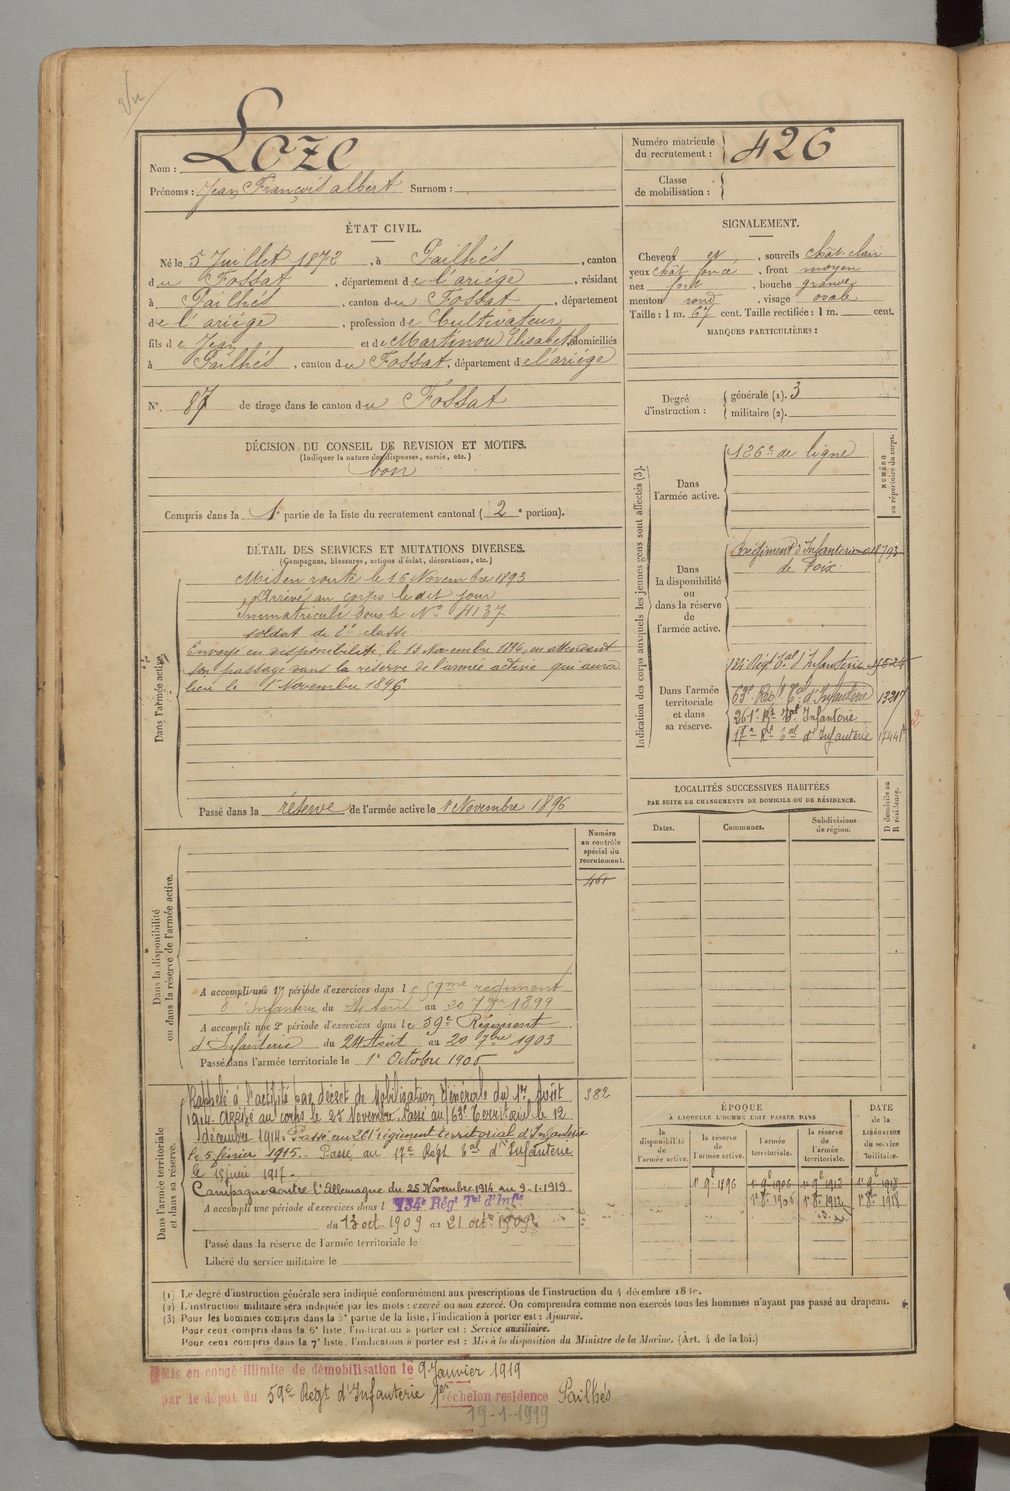 Vu
Nom : Loze
Prénoms : Jean François albert Surnom :
Numéro matricule du recrutement : 426
Classe de mobilisation :
ÉTAT CIVIL.
Né le 5 Juillet 1872, à Pailhès, canton
du Fossat, département de l'ariége, résidant
à Pailhés, canton du Fossat, département
de l'ariége, profession de Cultivateur
fils de Jean et de Martinou Elisabeth domiciliés
à Pailhés, canton du Fossat, département de l'ariége
N°. 87 de tirage dans le canton du Fossat
SIGNALEMENT.
Cheveux et, sourcils chât. clair
yeux chât. foncé, front moyen
nez fort, bouche grande
menton rond, visage ovale
Taille : 1 m. 67 cent. Taille rectifiée : 1 m. cent.
MARQUES PARTICULIÈRES :
Degré d'instruction : générale (1). 3
militaire (2).
DÉCISION DU CONSEIL DE REVISION ET MOTIFS.
(Indiquer la nature des dispenses, sursis, etc.)
bon
Compris dans la 1e partie de la liste du recrutement cantonal (2e portion).
DÉTAIL DES SERVICES ET MUTATIONS DIVERSES.
(Campagnes, blessures, actions d'éclat, décorations, etc.)
Dans l'armée active.
Mis en route le 16 Novembre 1893
Arrivé au corps le dit jour
Immatriculé sous le N° 4137
soldat de 2e classe
Envoyé en disponibilité le 13 Novembre 1894, en attendant
son passage dans la réserve de l'armée active qui aura
lieu le 1er Novembre 1896
Passé dans la réserve de l'armée active le 1er Novembre 1896
Indication des corps auxquels les jeunes gens sont affectés (3).
NUMÉRO au répertoire du corps.
Dans l'armée active.
126e de ligne
Dans la disponibilité ou dans la réserve de l'armée active.
Régiment d'Infanterie
de Foix
Dans l'armée territoriale et dans sa réserve.
134e Régt tal d'Infanterie
63e Régt tal d'Infanterie 13217
261e Rt tal Infanterie
17e Rt tal d'Infanterie 17441
LOCALITÉS SUCCESSIVES HABITÉES
PAR SUITE DE CHANGEMENTS DE DOMICILE OU DE RÉSIDENCE.
D domicile ou R résidence.
Dates. Communes. Subdivisions de région.
Numéro au contrôle spécial du recrutement.
461
Dans la disponibilité ou dans la réserve de l'armée active.
A accompli une 1re période d'exercices dans le 59me regiment
d'Infanterie du 24 Aout au 20 7bre 1899
A accompli une 2e période d'exercices dans le 59e Régiment
d'Infanterie du 24 Aout au 20 7bre 1903
Passé dans l'armée territoriale le 1er Octobre 1906
Dans l'armée territoriale et dans sa réserve.
382
Rappelé à l'activité par décret de Mobilisation Générale du 1er Août
1914. Arrivé au corps le 25 Novembre. Passé au 63e Territorial le 12
décembre 1914. Passé au 261e régiment territorial d'Infanterie
le 5 février 1915. Passé au 17e Régt tal d'Infanterie
le 15 juin 1917.
Campagne contre l'Allemagne du 25 Novembre 1914 au 9-1-1919
A accompli une période d'exercices dans l 134e Régt Tal d'Infie
du 13 oct 1909 au 21 octe 1909
Passé dans la réserve de l'armée territoriale le
Libéré du service militaire le
ÉPOQUE
À LAQUELLE L'HOMME DOIT PASSER DANS
DATE de la LIBÉRATION du service militaire.
la disponibilité de l'armée active. la réserve de l'armée active. l'armée territoriale. la réserve de l'armée territoriale.
1er 9e 1896 1er 9e 1906 1er 9e 1912 1er 9e 1918
1er 8e 1906 1er 8e 1912 1er 8e 1918
(1) Le degré d'instruction générale sera indiqué conformément aux prescriptions de l'instruction du 4 décembre
(2) L'instruction militaire sera indiquée par les mots : exercé ou non exercé. On comprendra comme non exercés tous les hommes n'ayant pas passé au drapeau.
(3) Pour les hommes compris dans la 5e partie de la liste, l'indication à porter est : Ajourné.
Pour ceux compris dans la 6e liste, l'indication à porter est : Service auxiliaire.
Pour ceux compris dans la 7e liste, l'indication à porter est : Mis à la disposition du Ministre de la Marine. (Art. 4 de la loi.)
Mis en congé illimité de démobilisation le 9 Janvier 1919
par le dépot du 59e Régt d'Infanterie 1er échelon residence Pailhés
19-1-1919